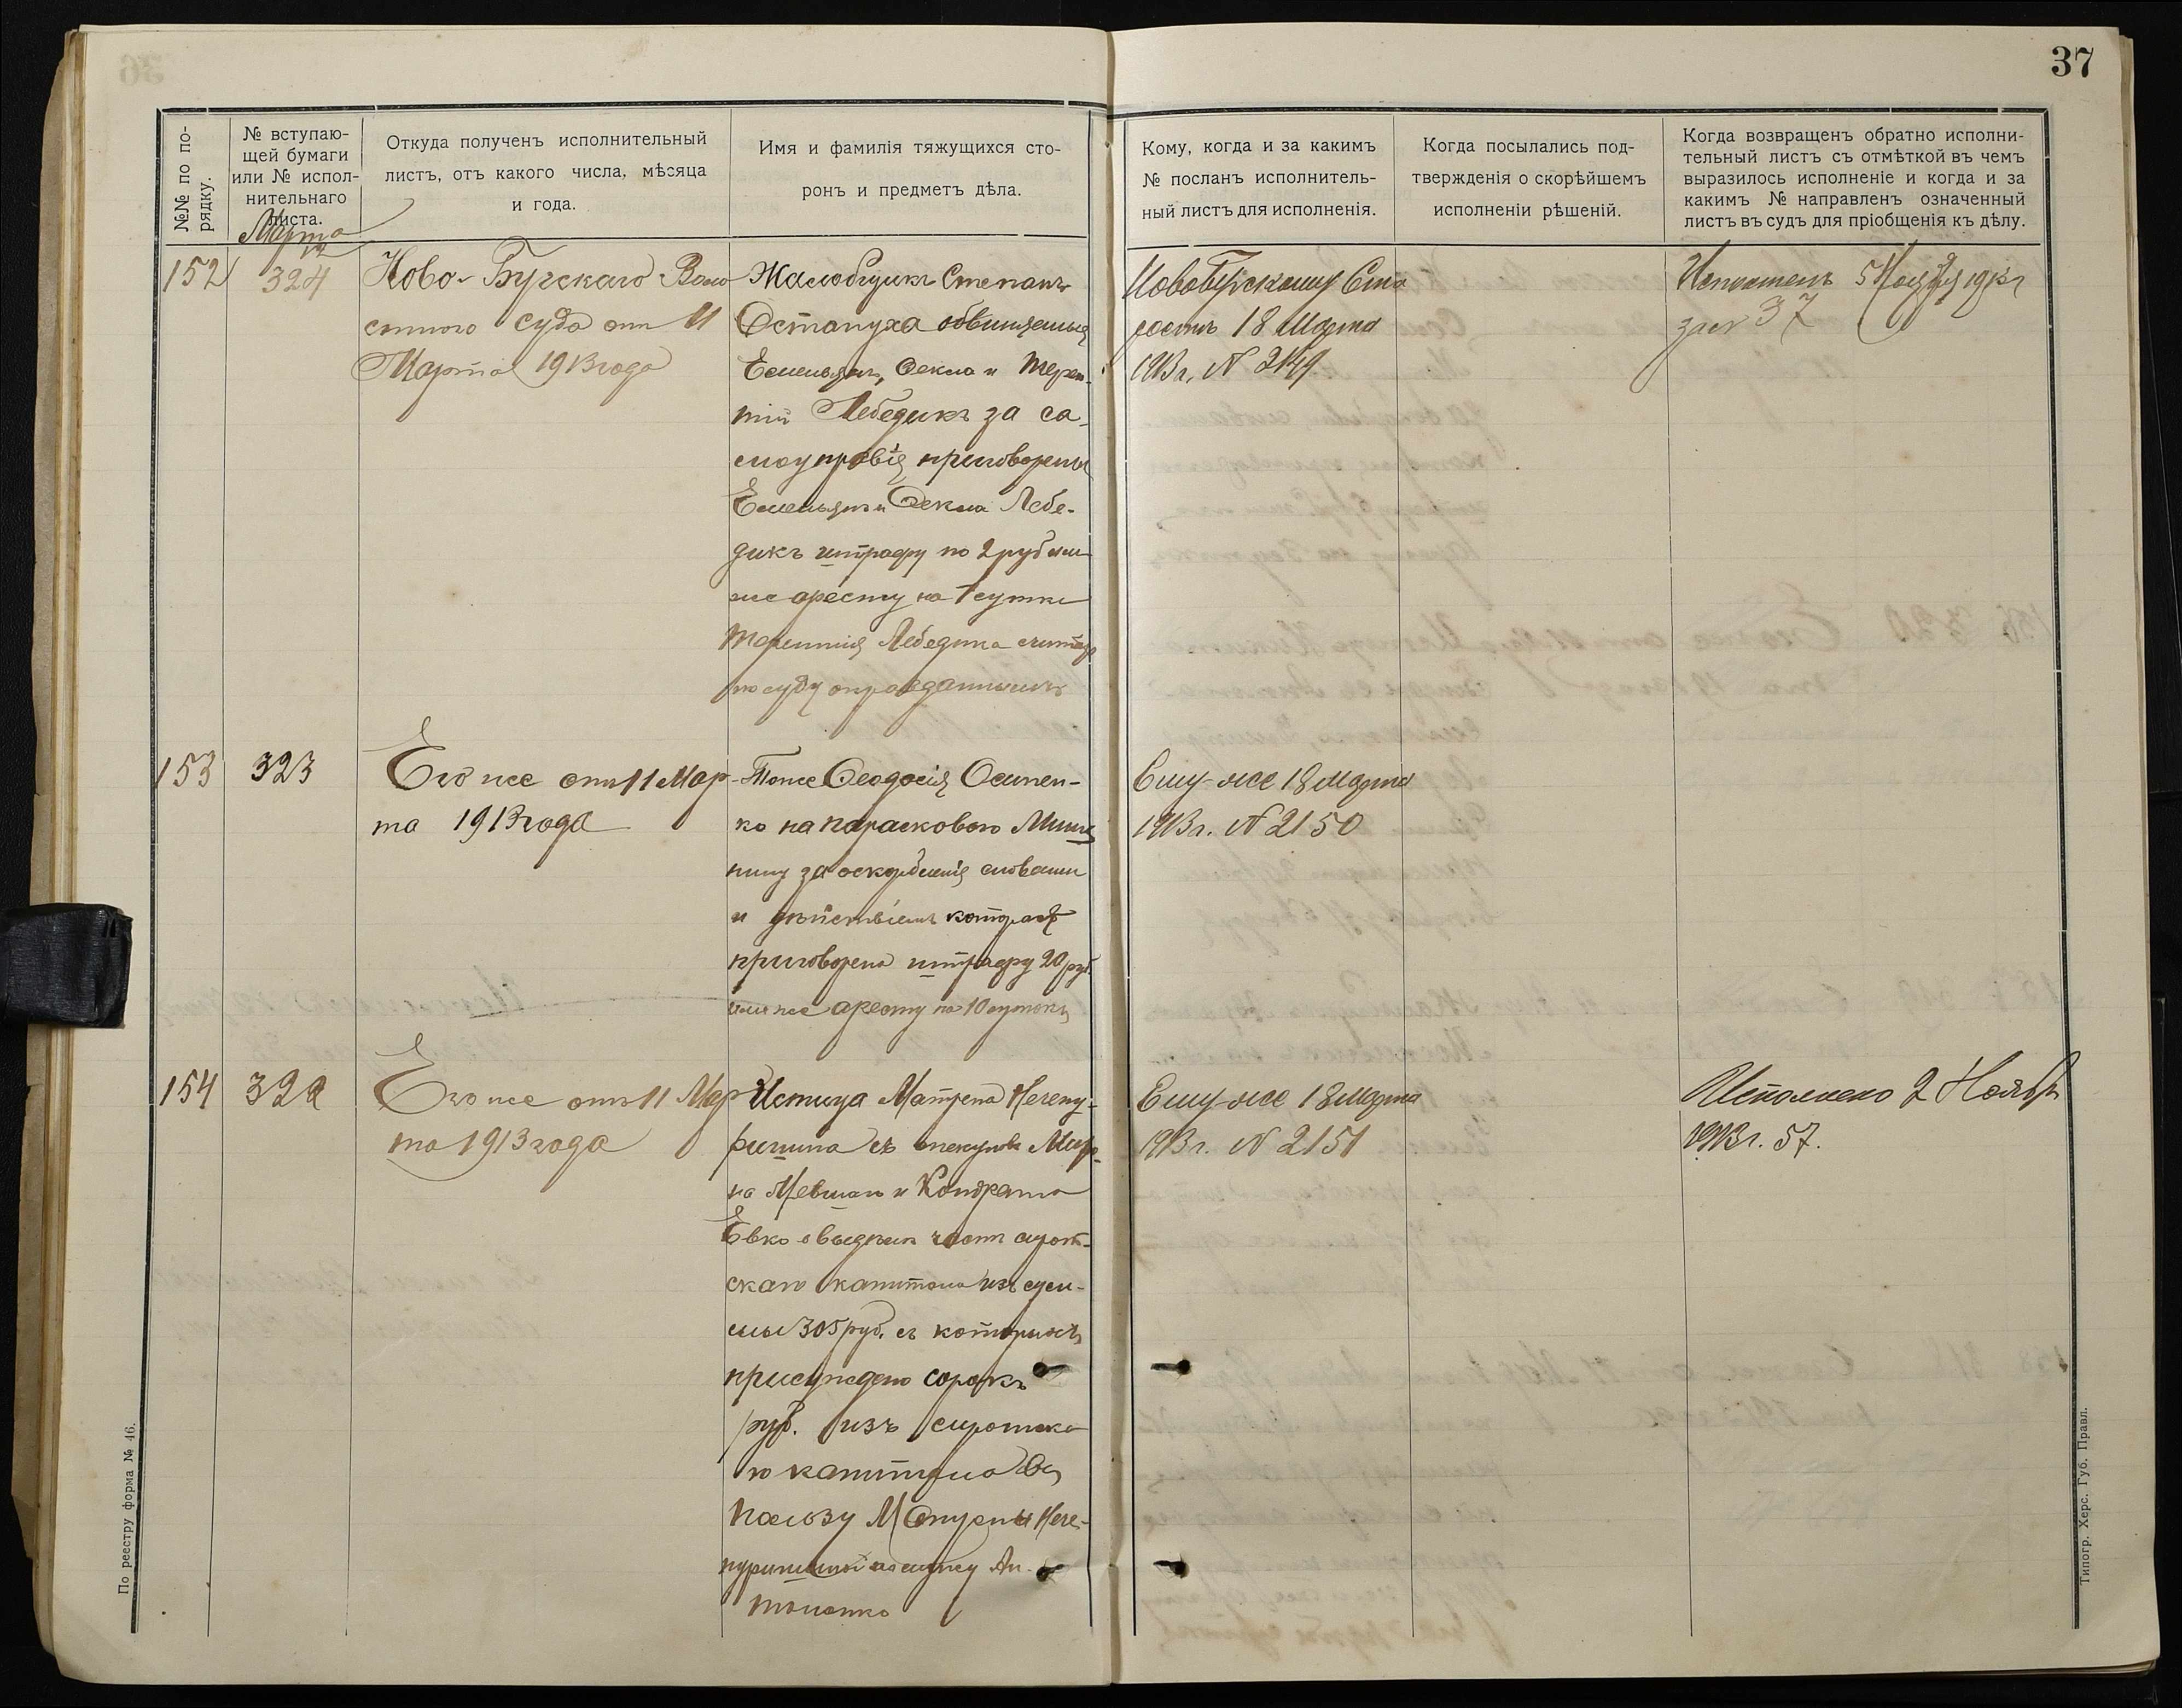 37
№№ по по-
рядку.
№ вступаю-
щей бумаги
или № испол-
нительнаго
листа.
Откуда полученъ исполнительный
листъ, отъ какого числа, мѣсяца
и года.
Имя и фамилія тяжущихся сто-
ронъ и предметъ дѣла.
Кому, когда и за какимъ
№ посланъ исполнитель-
ный листъ для исполненія.
Когда посылались под-
твержденія о скорѣйшемъ
исполненіи рѣшеній.
Когда возвращенъ обратно исполни-
тельный листъ съ отмѣткой въ чемъ
выразилось исполненіе и когда и за
какимъ № направленъ означенный
листъ въ судъ для пріобщенія къ дѣлу.
Марта
152
324
Ново-Бугскаго Воло
стного суда отъ 11
Марта 1913 года
Жалобщикъ Степанъ
Остапуха обвиняемые
Емельянъ, Ѳекла и Терен-
тій Лебедикъ за са-
моуправія приговорены
Емельянъ и Ѳекла Лебе-
дикъ штрафу по 2 руб или
же аресту на 1 сутки
Терентія Лебедика считать
по суду оправданнымъ
Новобугскому Ста
ростѣ 18 Марта
1913 г. № 2149
5 1913 г
за № 37
153
323
Его же отъ 11 Мар-
та 1913 года
Тоже Ѳеодосія Осипен-
ко на Парасковью
за оскорбленія словами
и дѣйствіемъ
приговорена штрафу 20 руб.
или же аресту на 10 сутокъ
Ему-же 18 марта
1913 г. № 2150
154
322
Его же отъ 11 Мар
та 1913 года
Истица Матрена Нечепу-
ричина съ опекуновъ Миро-
на и Кондрата
Евко о выдачи части сирот-
скаго капитала изъ сум-
мы 305 руб. съ которыхъ
присуждено сорокъ
руб. изъ сиротска
го капитала въ
пользу Матрены Нече-
пуричиной по мужу Ан-
тоненко
Ему-же 18 марта
1913 г. № 2151
Исполнено 2 Ноября
1913 г. 57.
По реестру форма № 46.
Типогр. Херс. Губ. Правл.